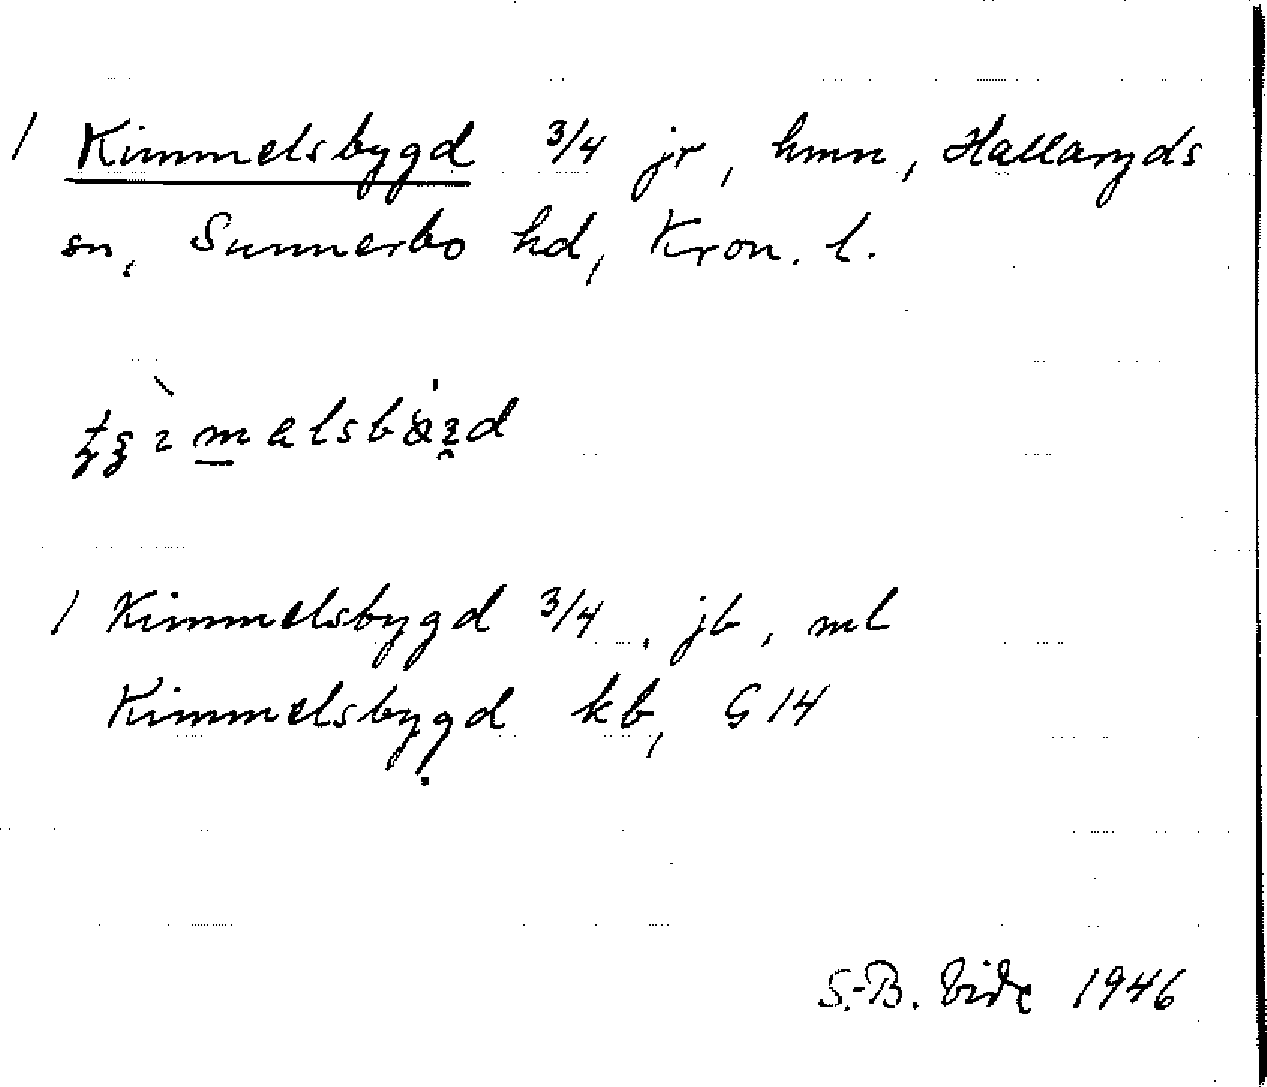 1 Kimmelsbygd 3/4 jr, hmn, Hallaryds
sn, Sunnerbo hd, Kron. l.
1 Kimmelsbygd 3/4, jb, ml
Kimmelsbygd kb, G 14
S.-B. Vide 1946